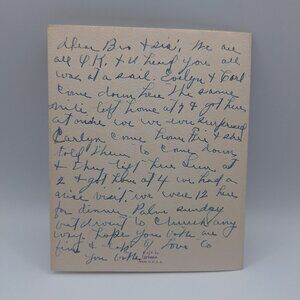 Dear Bro & sis', We are
all O K. & heard you all
was at a sail. Evelyn & Carl
come down here the same
nite left home at 7 & got here
at nine we we were surprised
Carlyn come from Fri & she
told them to come down
& they left here Sun at
2 & got home at 4. we had a
nice visit. we were 12 here
for dinner Palm sunday
but drove to Church any
way. hope you both are
fine & lots of Love to
you both
MADE IN U.S.A.